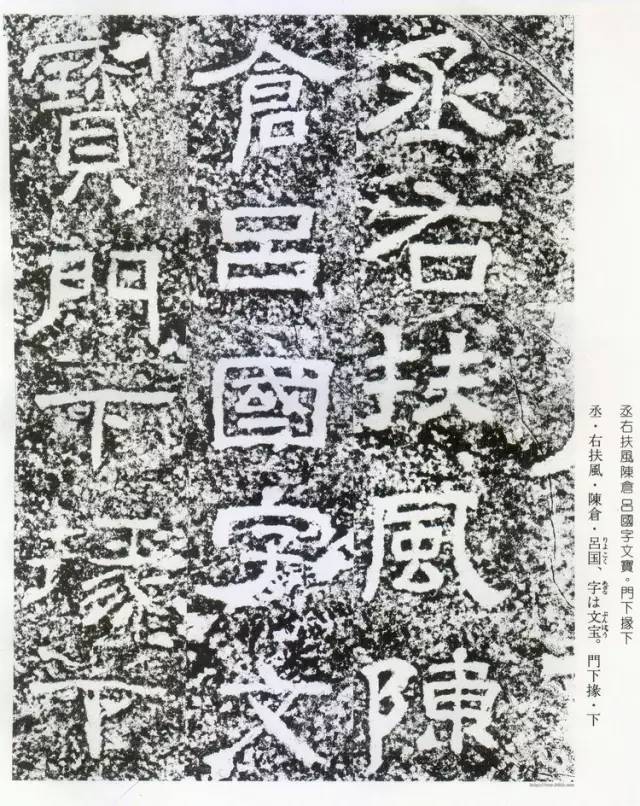 丞右扶風陳
倉呂國字文
寶門下掾下
丞右扶風陳倉呂國字文寶。門下掾下
丞・右扶風・陳倉・呂国、字は文宝。門下掾・下
りよこく
あざな
ぶんぽう